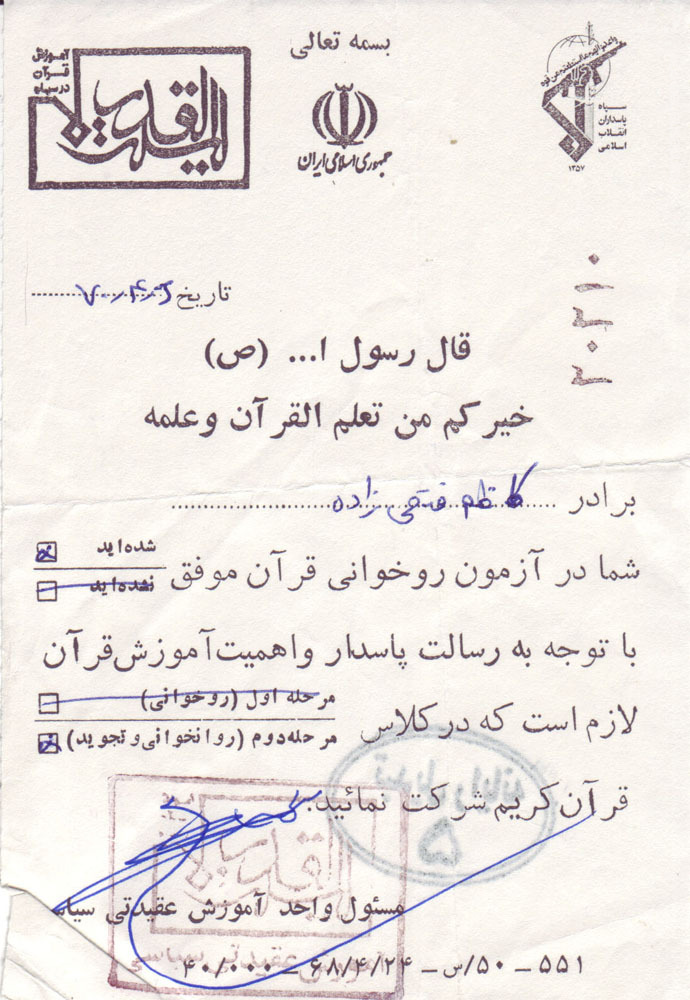 بسمه تعالی
آموزش
قرآن
در سپاه
لیلة القدر
جمهوری اسلامی ایران
سپاه
پاسداران
انقلاب
اسلامی
۱۳۵۷
۳۰۳۱۰
تاریخ
قال رسول ا... (ص)
خیر کم من تعلم القرآن وعلمه
برادر کاظم فتحی زاده
شما در آزمون روخوانی قرآن موفق
شده‌اید
نشده‌اید
با توجه به رسالت پاسدار واهمیت آموزش قرآن
لازم است که در کلاس
مرحله اول (روخوانی)
مرحله دوم (روانخوانی و تجوید)
قرآن کریم شرکت نمائید.
۵
مسئول واحد آموزش عقیدتی سیاسی
آموزش عقیدتی سیاسی
۵۵۱ – ۵۰/س – ۶۸/۴/۲۴ – ۴۰/۰۰۰